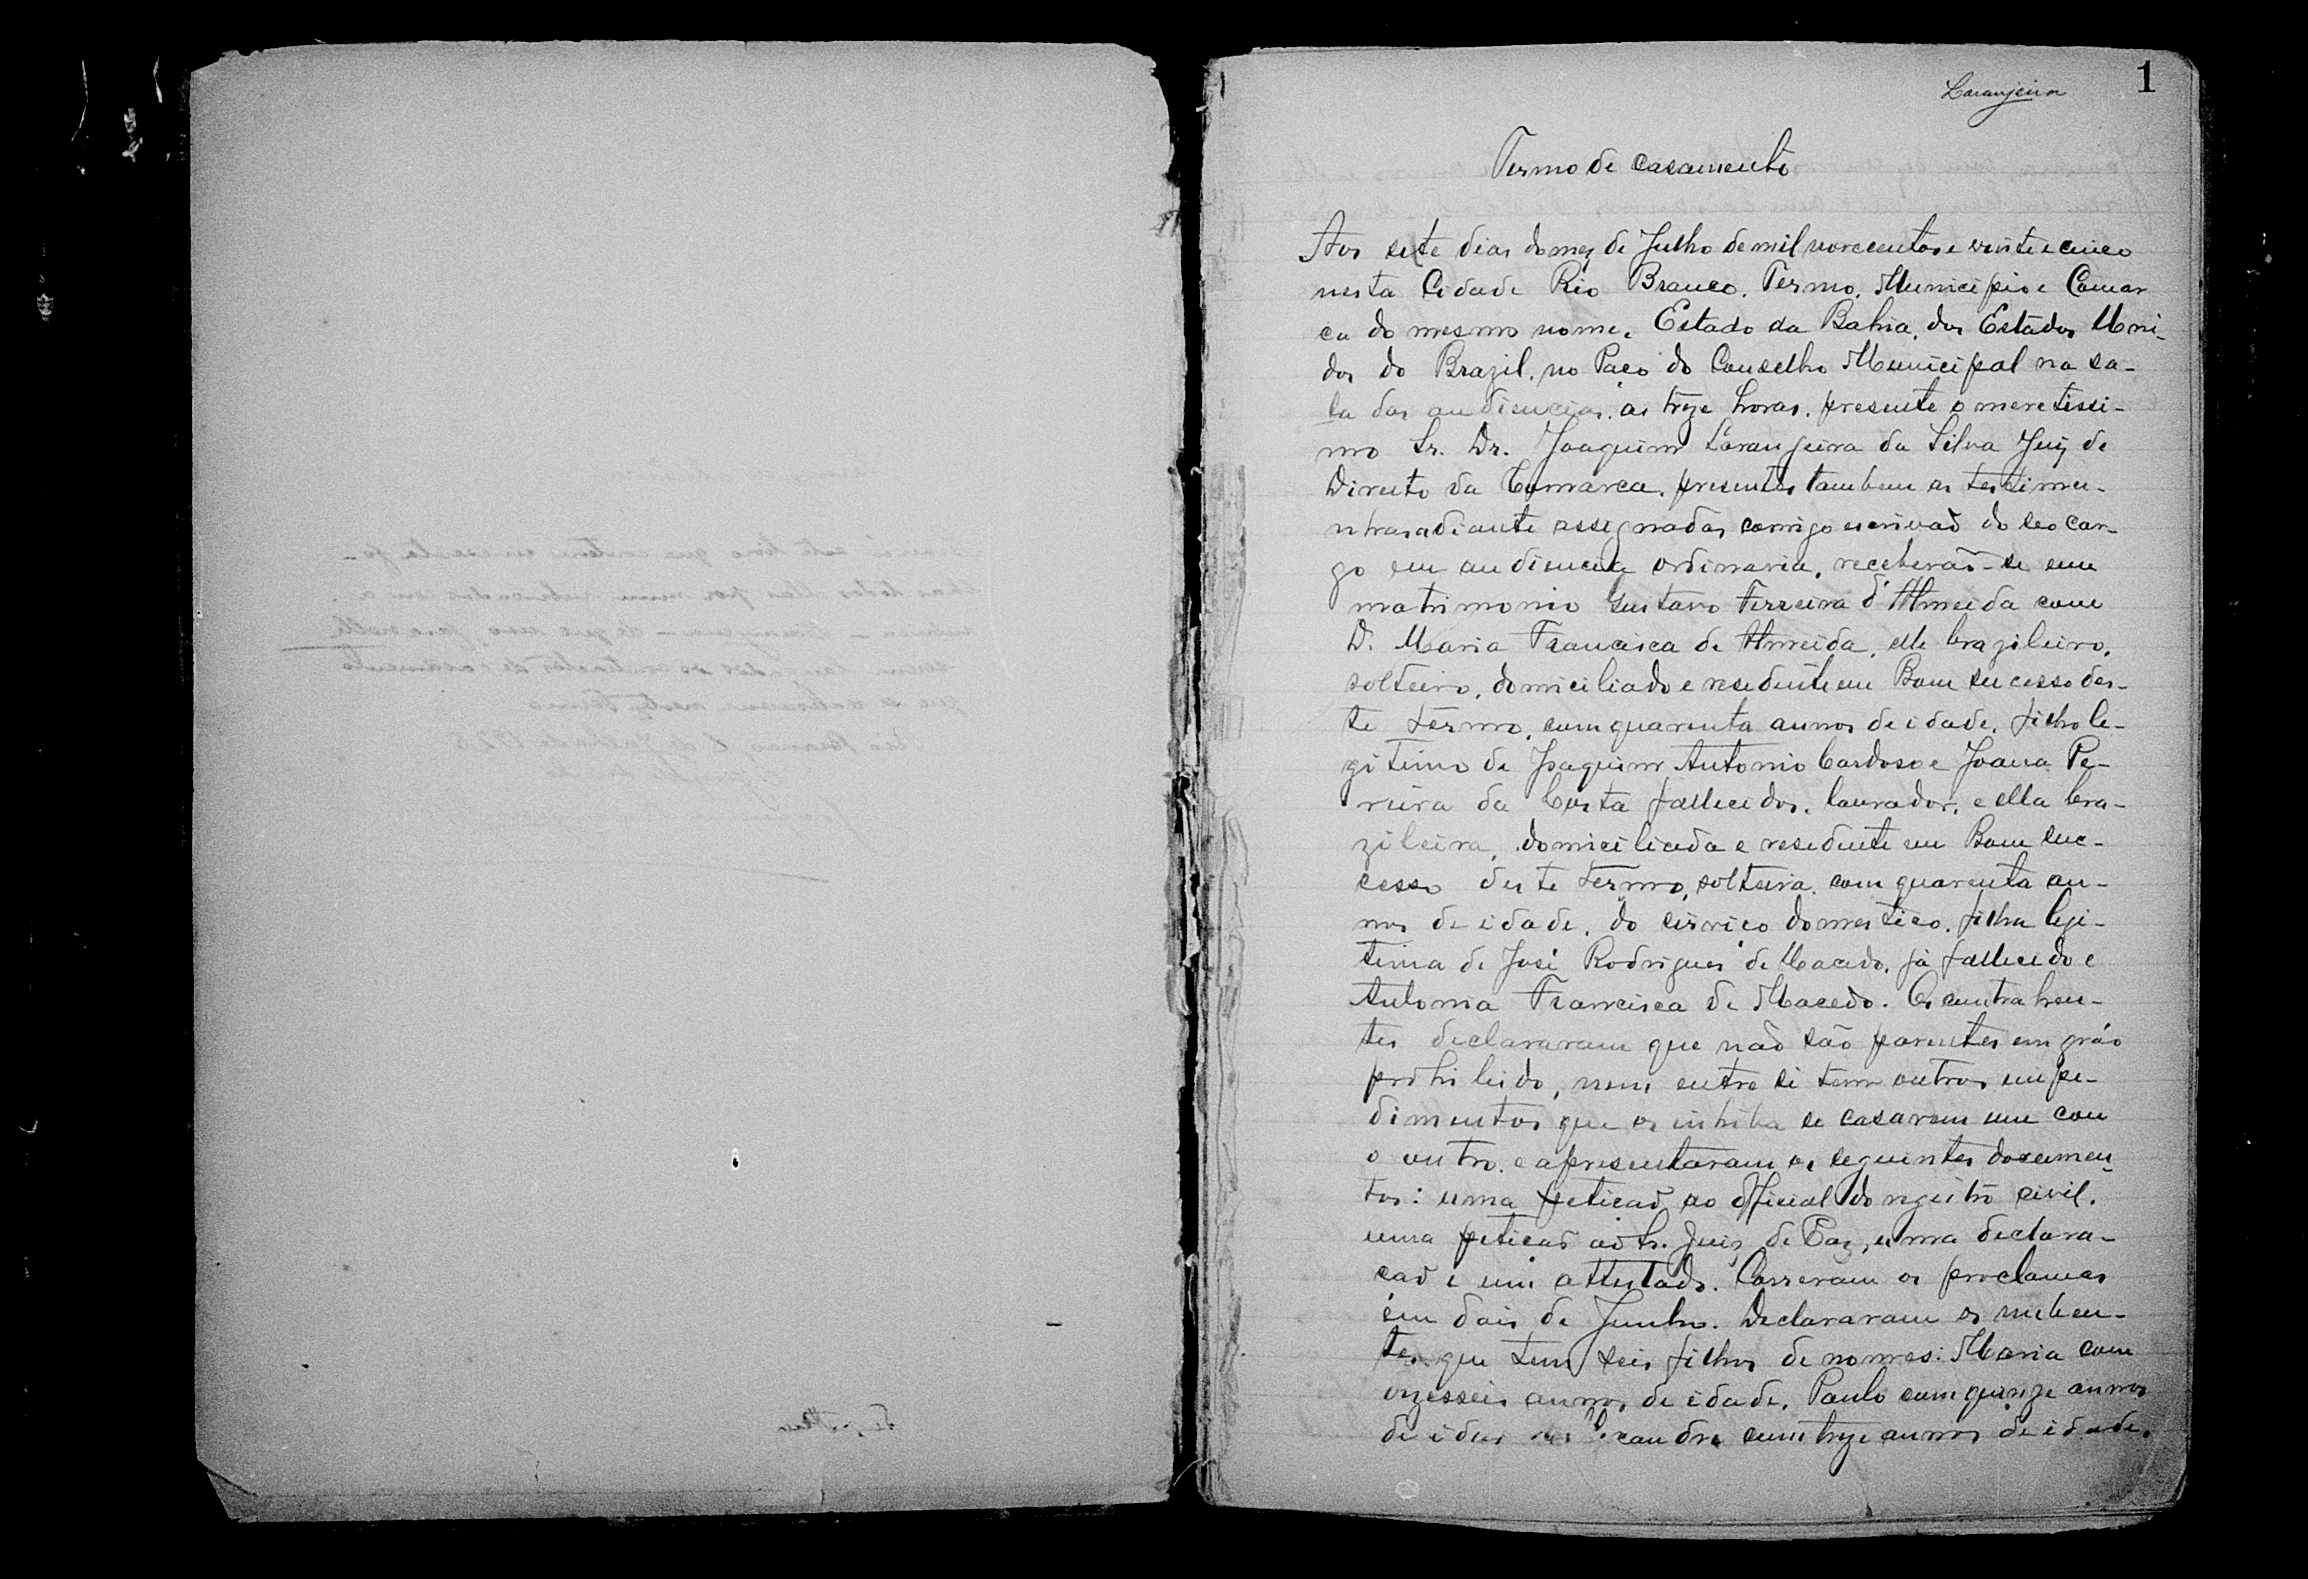 Laranjeira
1
Termo de casamento
Aos sete dias do mez de Julho de mil novecentos e vinte e cinco
nesta Cidade Rio Branco, Termo, Municipio e Comar
ca do mesmo nome, Estado da Bahia, dos Estados Uni-
dos do Brazil, no Paço do Conselho Municipal na sa-
la das audiencias, as treze horas, presente o meretissi-
mo Sr. Dr. Joaquim Laranjeira da Silva Juiz de
Direito da Comarca, presentes tambem as testimu-
nhas adiante assegnadas comigo escrivaõ do seo car-
go em audiencia ordinaria, receberaõ-se em
matrimonio Gustavo Ferreira d'Almeida com
D. Maria Francisca de Almeida, elle brazileiro,
solteiro, domiciliado e residente em Bom successo des-
te termo, com quarenta annos de idade, filho le-
gitimo de Joaquim Antonio Cardoso e Joana Pe-
reira da Costa fallecidos, lavrador, e ella bra-
zileira, domiciliada e residente em Bom suc-
cesso deste termo, solteira, com quarenta an-
nos de idade, do serviço domestico, filha legi-
tima de José Rodrigues de Macedo, já fallecido e
Antonia Francisca de Macedo. Os contrahen-
tes declararam que naõ são parentes em gráo
prohibido, nem entre si tem outros impe-
dimentos que os inhiba se casarem um com
o outro, e apresentaram os seguintes documen-
tos: uma petiçaõ ao official do registro civil,
uma petiçaõ ao Sr. Juiz de Paz, uma declara-
çaõ e um attestado. Correram os proclamas
em dois de Junho. Declararam os nuben-
tes que tem seis filhos de nomes: Maria com
dezesseis annos de idade, Paulo com quinze annos
de com treze annos de idade,